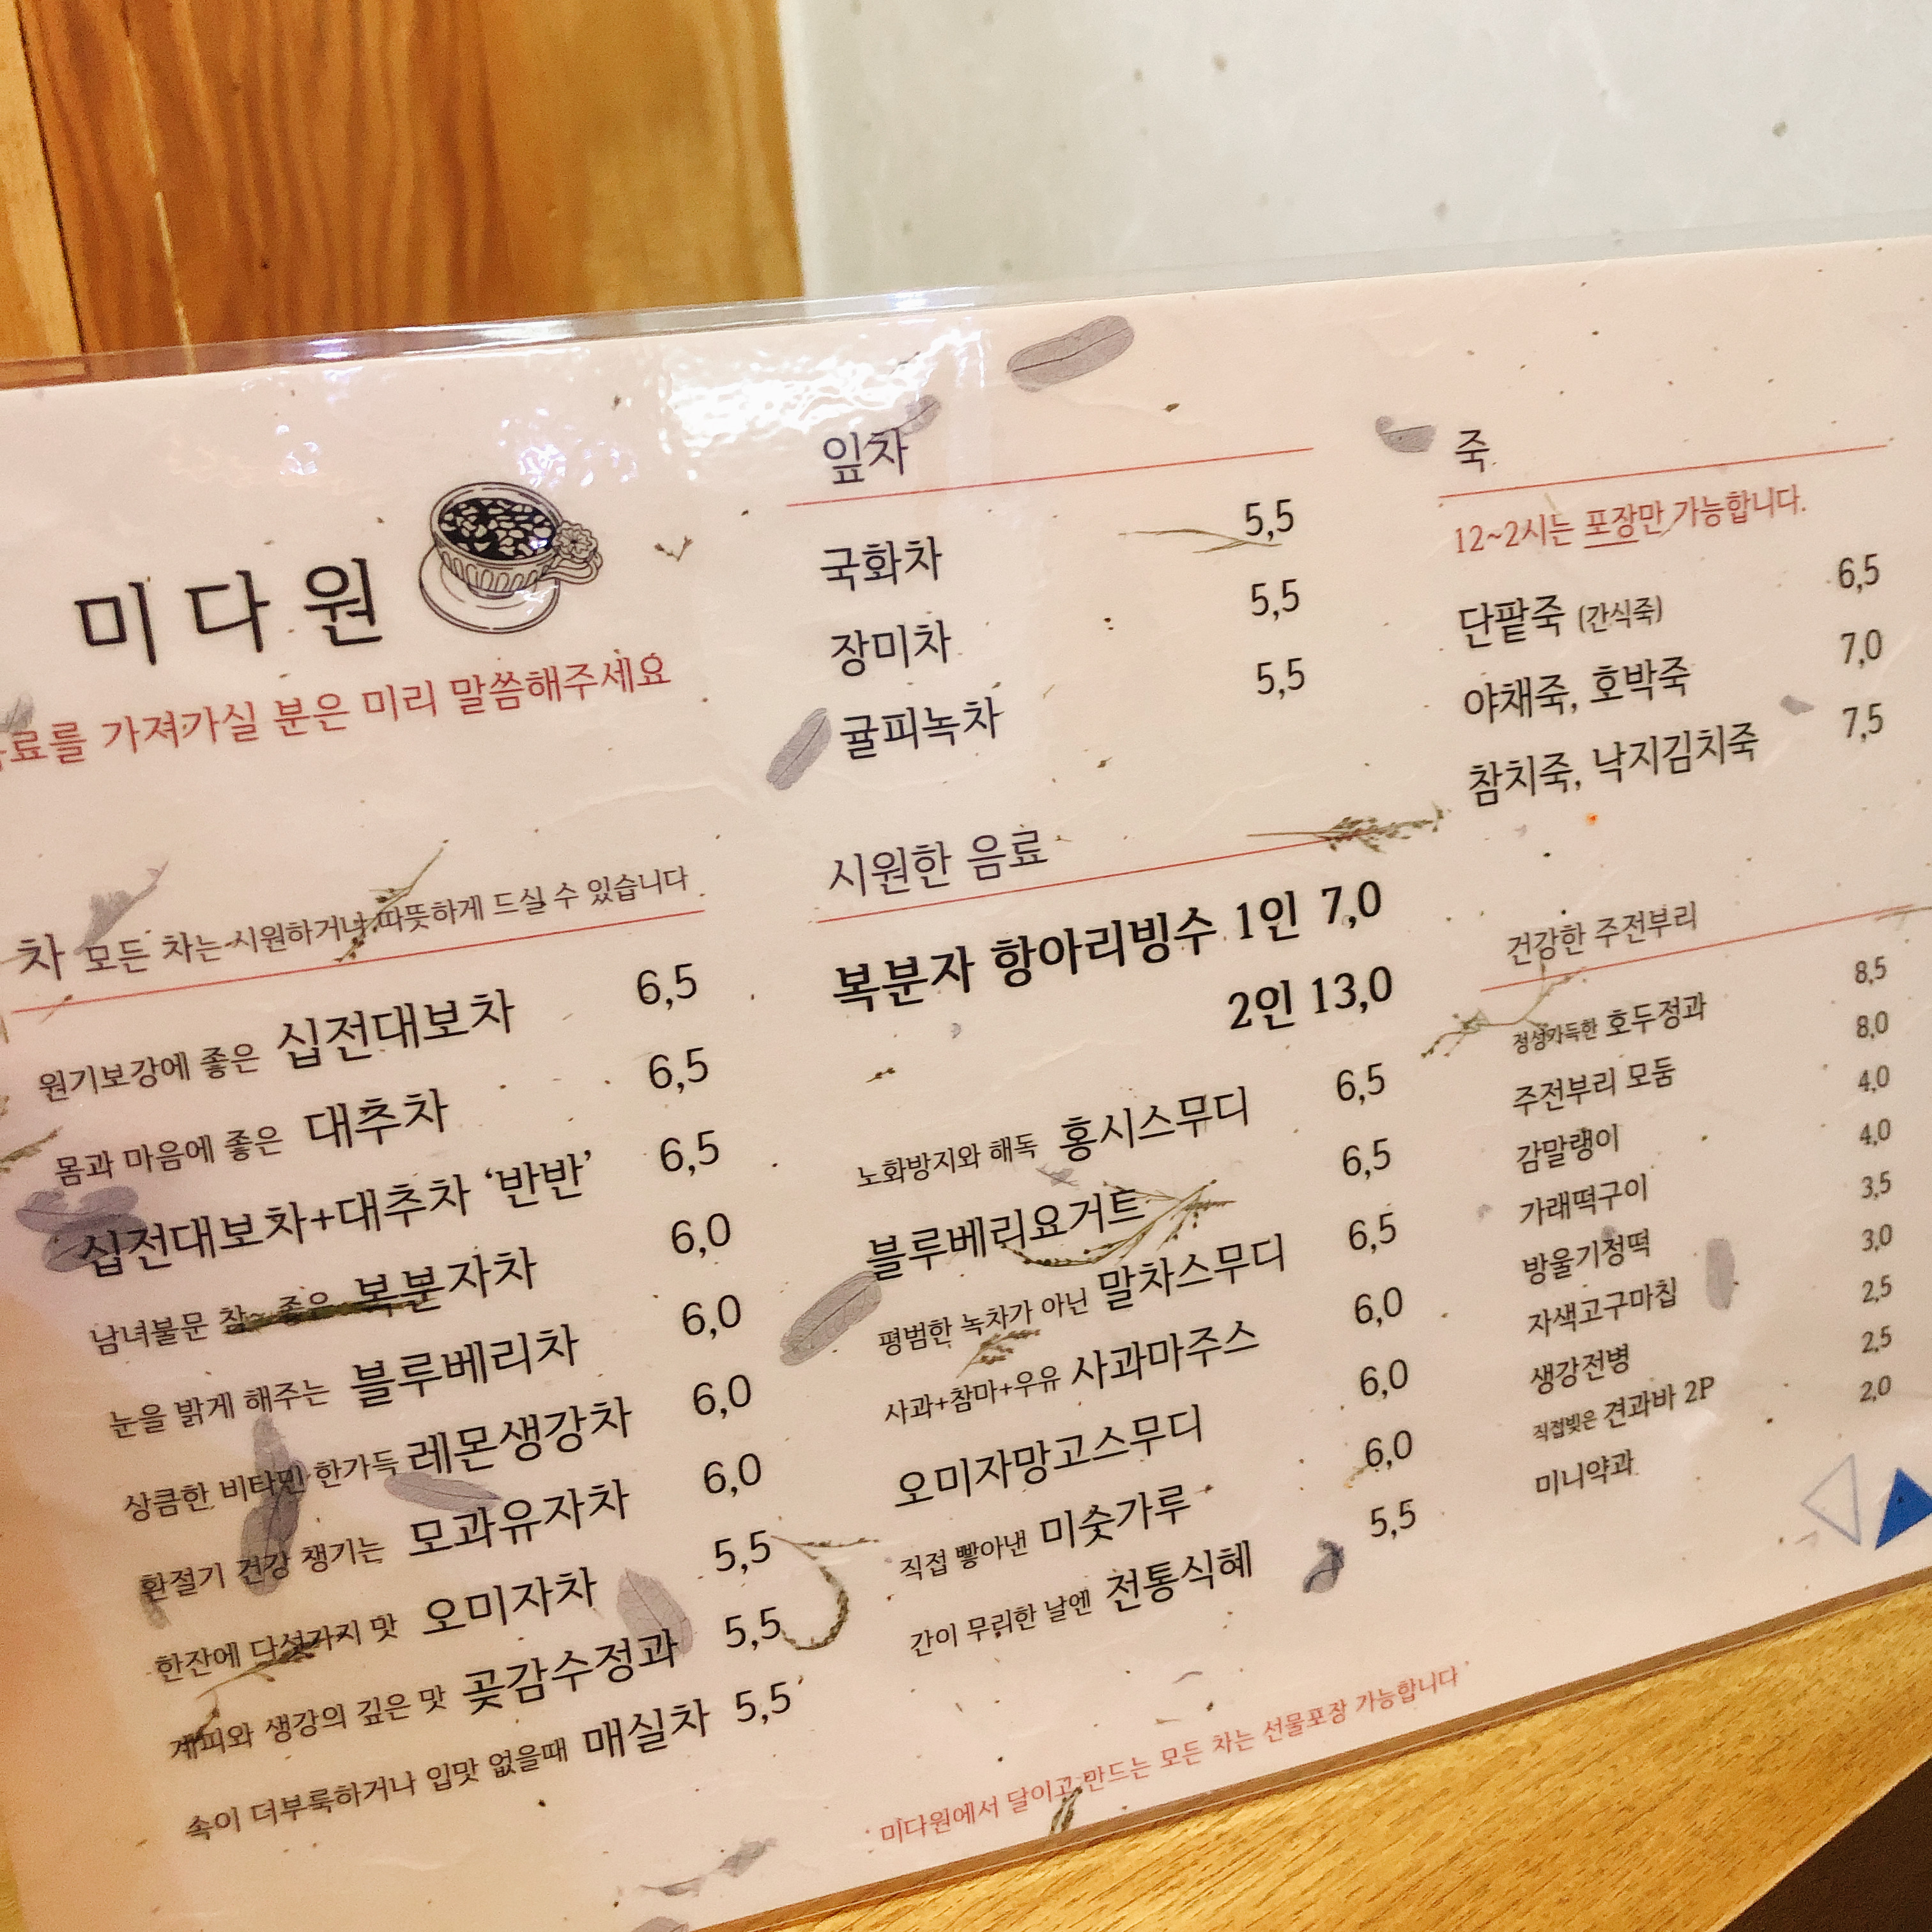 미다원
료를 가져가실 분은 미리 말씀해주세요
차 모든 차는 시원하거나 따뜻하게 드실 수 있습니다
원기보강에 좋은 십전대보차 6,5
몸과 마음에 좋은 대추차 6,5
십전대보차+대추차 '반반' 6,5
남녀불문 참~ 좋은 복분자차 6,0
눈을 밝게 해주는 블루베리차 6,0
상큼한 비타민 한가득 레몬생강차 6,0
환절기 건강 챙기는 모과유자차 6,0
한잔에 다섯가지 맛 오미자차 5,5
계피와 생강의 깊은 맛 곶감수정과 5,5
속이 더부룩하거나 입맛 없을때 매실차 5,5
잎차
국화차 5,5
장미차 5,5
귤피녹차 5,5
시원한 음료
복분자 항아리빙수 1인 7,0
2인 13,0
노화방지와 해독 홍시스무디 6,5
블루베리요거트 6,5
평범한 녹차가 아닌 말차스무디 6,5
사과+참마+우유 사과마주스 6,0
오미자망고스무디 6,0
직접 빻아낸 미숫가루 6,0
간이 무리한 날엔 전통식혜 5,5
죽
12~2시는 포장만 가능합니다.
단팥죽 (간식죽) 6,5
야채죽, 호박죽 7,0
참치죽, 낙지김치죽 7,5
건강한 주전부리
정성가득한 호두정과 8,5
주전부리 모둠 8,0
감말랭이 4,0
가래떡구이 4,0
방울기정떡 3,5
자색고구마칩 3,0
생강전병 2,5
직접빚은 견과바 2P 2,5
미니약과 2,0
미다원에서 달이고 만드는 모든 차는 선물포장 가능합니다